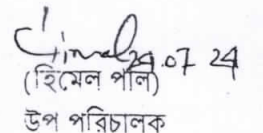 29.07.24
(হিমেল পাল)
উপ পরিচালক